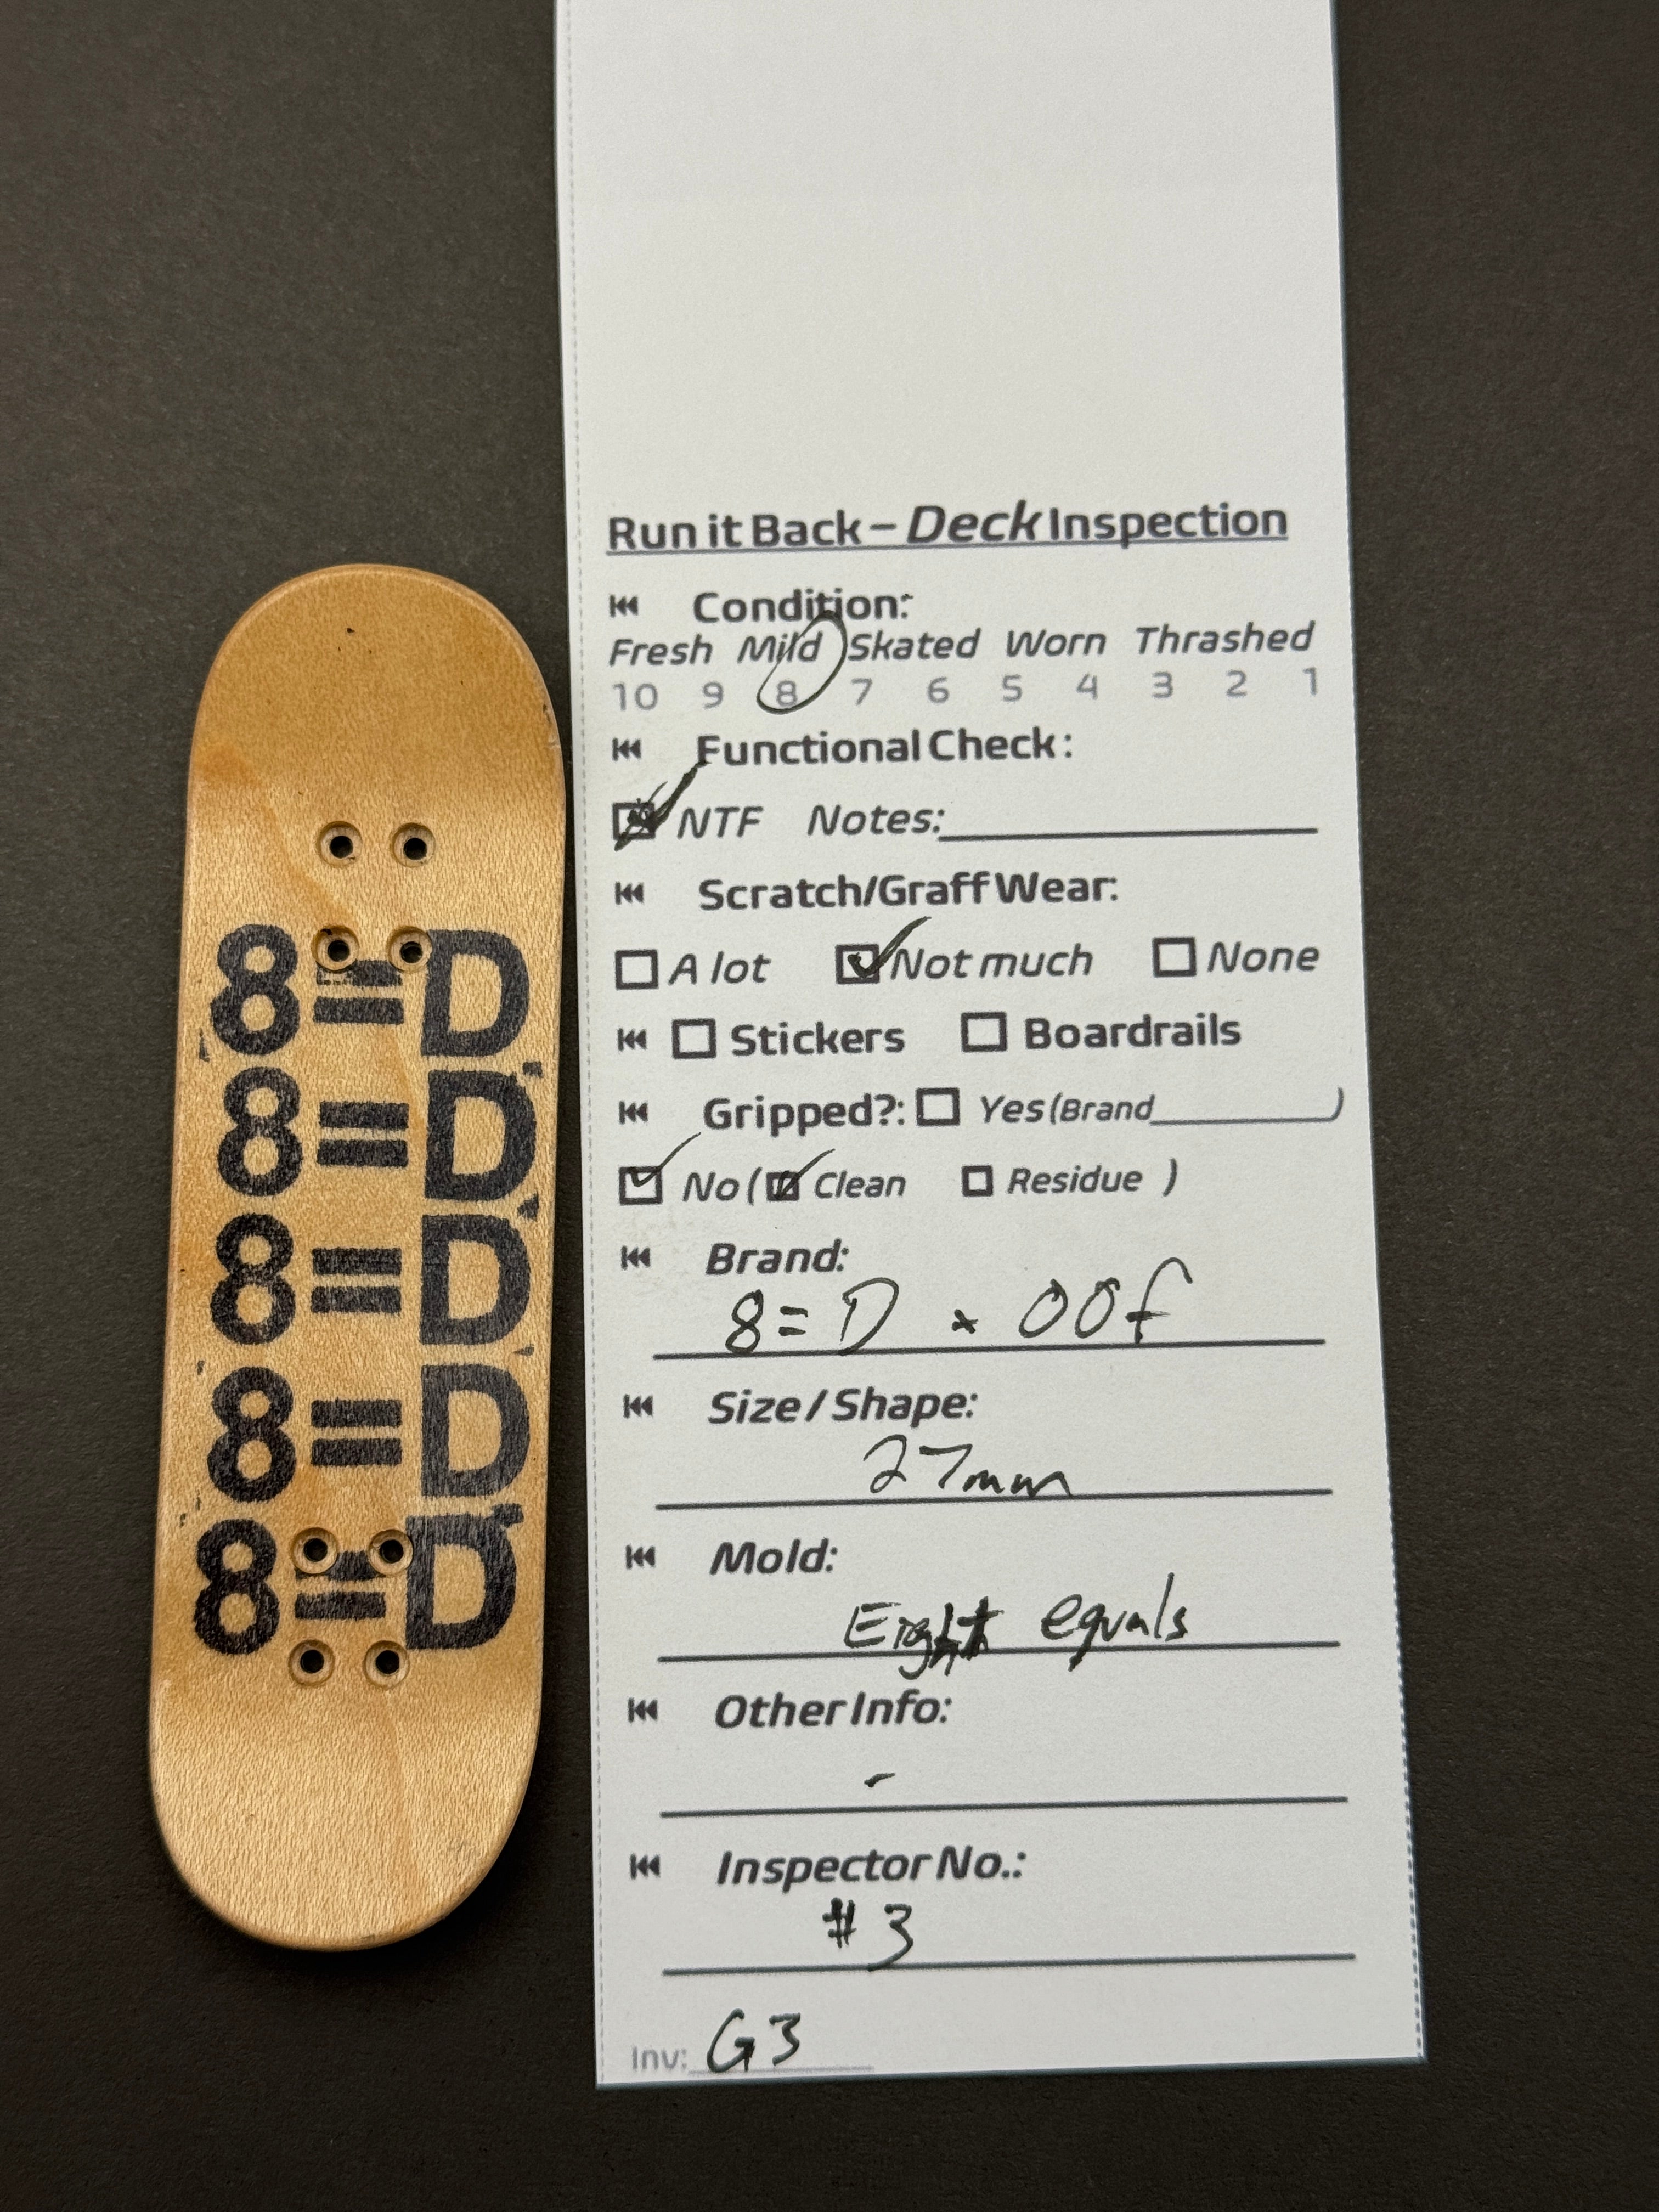 8=D
8=D
8=D
8=D
8=D
Run it Back – Deck Inspection
Condition:
Fresh Mild Skated Worn Thrashed
10 9 8 7 6 5 4 3 2 1
Functional Check:
NTF Notes:
Scratch/Graff Wear:
A lot Not much None
Stickers Boardrails
Gripped?: Yes (Brand )
No ( Clean Residue )
Brand:
8=D x OOf
Size / Shape:
27mm
Mold:
Eight equals
Other Info:
-
Inspector No.:
#3
Inv: G3